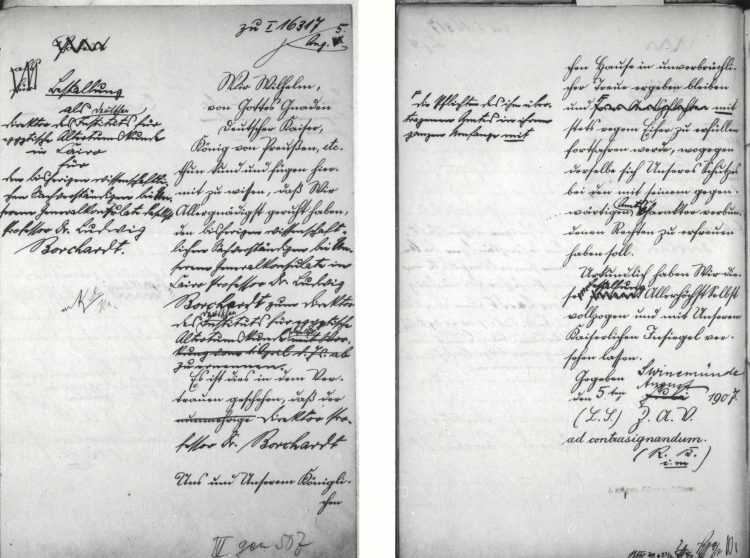 zu I 16317
5.
Aug.
Bestallung
als deutschen
Direktor des Instituts für
ägyptische Altertumskunde
in Cairo
für
den bisherigen wissenschaftli-
chen Sachverständigen bei Un-
serem Generalkonsulate daselbst
Professor Dr. Ludwig
Borchardt.
Wir Wilhelm,
von Gottes Gnaden
Deutscher Kaiser,
König von Preußen, etc.
thun kund und fügen hier-
mit zu wissen, daß Wir
Allergnädigst geruht haben,
den bisherigen wissenschaft-
lichen Sachverständigen bei Un-
serem Generalkonsulate in
Cairo Professor Dr. Ludwig
Borchardt zum Direktor
deutschen
des Instituts für ägyptische
Altertumskunde mit Wir-
kung vom 1. April d. Js. ab
zu ernennen.
Es ist dies in dem Ver-
trauen geschehen, daß der
nunmehrige Direktor Pro-
fessor Dr. Borchardt
Uns und Unserem Königli-
chen
III gen 507
chen Hause in unverbrüchli-
cher Treue ergeben bleiben
und mit
stets regem Eifer zu erfüllen
fortfahren werde, wogegen
derselbe sich Unseres Schutzes
bei den mit seinem gegen-
wärtigen Amte Charakter verbun-
denen Rechten zu erfreuen
haben soll.
die Pflichten des ihm über-
tragenen Amtes in ihrem
ganzen Umfange mit
Urkundlich haben Wir die-
se Bestallung Allerhöchstselbst
vollzogen und mit Unserem
Kaiserlichen Insiegel ver-
sehen lassen.
Gegeben Swinemünde
August
den 5ten Juli 1907.
(L.S.) Z. A. V.
ad contrasignandum.
(R. K.)
i. m.